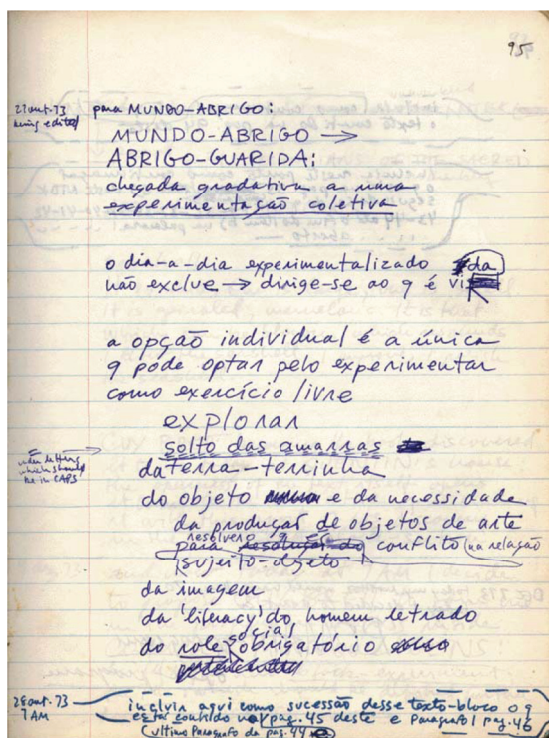 95
27 out. 73
being edited
para MUNDO-ABRIGO:
MUNDO-ABRIGO →
ABRIGO-GUARIDA:
chegada gradativa a uma
experimentação coletiva
o dia-a-dia experimentalizado
não exclue → dirige-se ao q é vida
a opção individual é a única
q pode optar pelo experimentar
como exercício livre
explorar
solto das amarras
da terra-terrinha
do objeto e da necessidade
da produção de objetos de arte
para resolver o conflito (na relação
sujeito-objeto
da imagem
da 'literacy' do homem letrado
do role social obrigatório
which should
be in CAPS
28 out. 73
1 AM
incluir aqui como sucessão desse texto-bloco o q
está contido na pag. 45 deste e Paragrafo 1 pag. 46
(ultimo Paragrafo da pag. 44